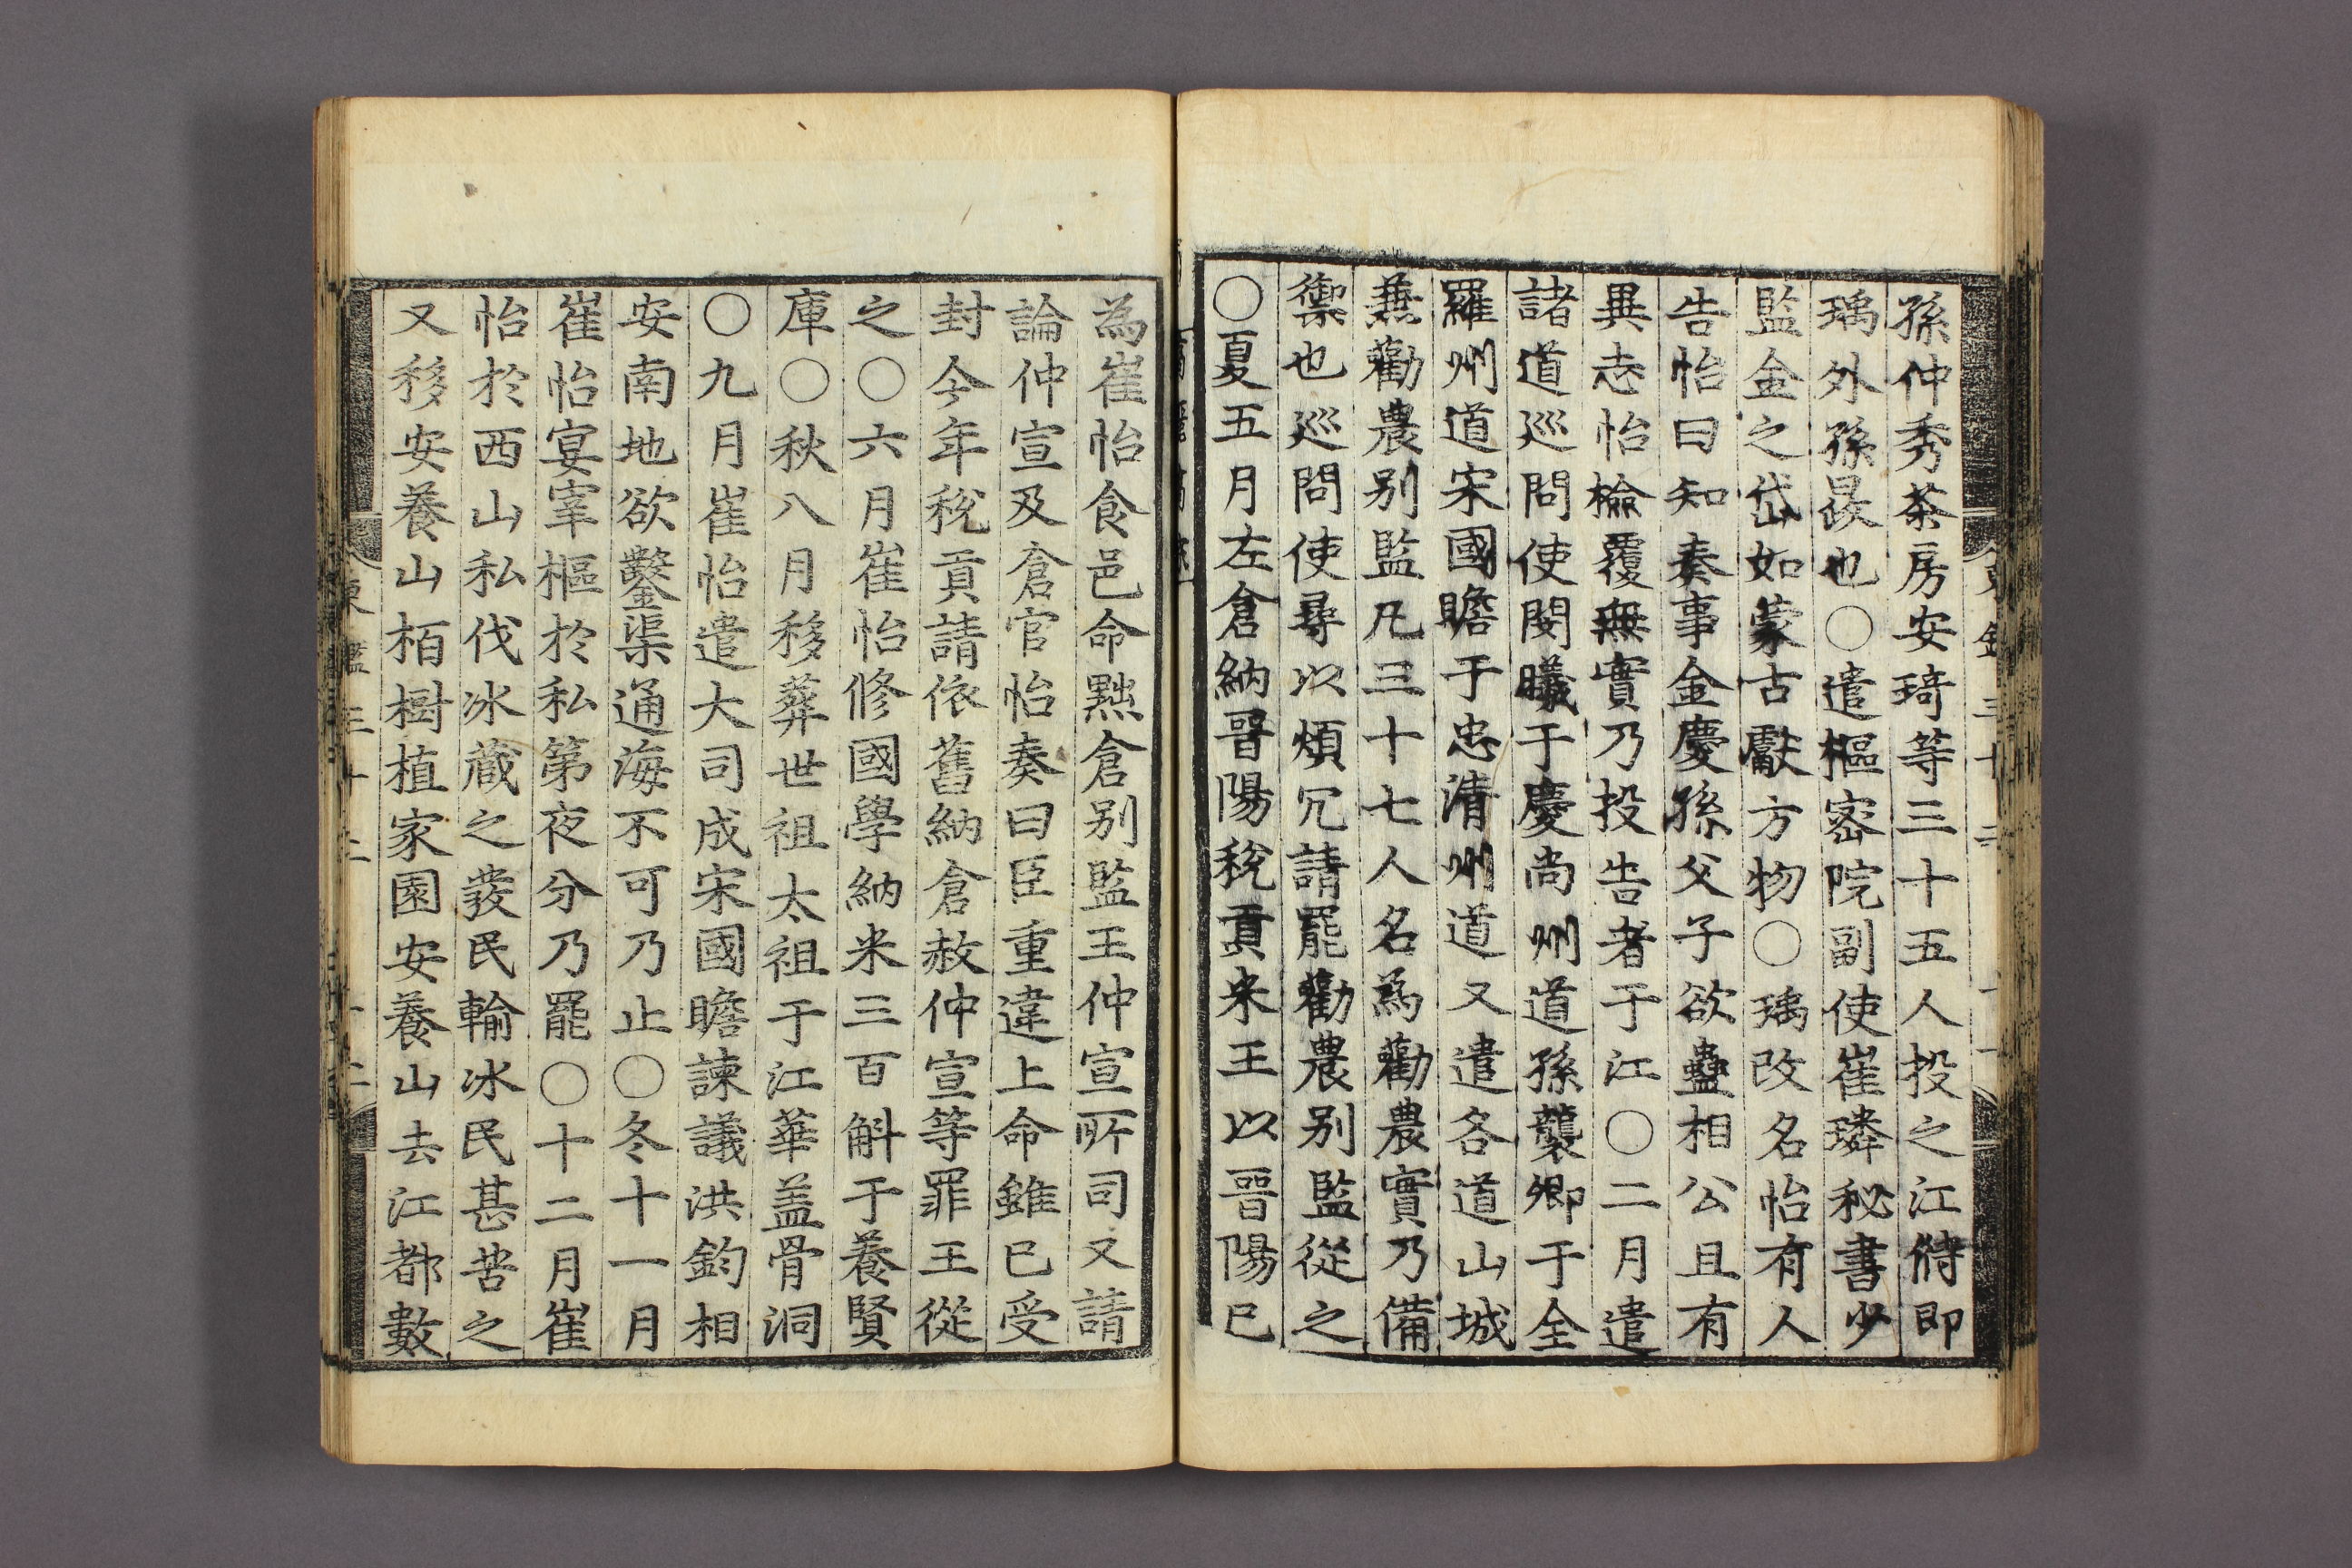 孫仲秀茶房安琦等三十五人投之江侍即
瑀外孫晸也〇遣樞密院副使崔璘秘書少
監金之岱如蒙古獻方物〇瑀改名怡有人
告怡曰知奏事金慶孫父子欲蠱相公且有
異志怡檢覆無實乃投告者于江〇二月遣
諸道巡問使閔曦于慶尚州道孫襲卿于全
羅州道宋國瞻于忠清州道又遣各道山城
兼勸農别監凡三十七人名為勸農實乃備
禦也巡問使尋以煩冗請罷勸農别監從之
〇夏五月左倉納晋陽稅貢米王以晋陽已
為崔怡食邑命黜倉别監王仲宣所司又請
論仲宣及倉官怡奏曰臣重違上命雖已受
封今年稅貢請依舊納倉赦仲宣等罪王從
之〇六月崔怡修國學納米三百斛于養賢
庫〇秋八月移葬世祖太祖于江華盖骨洞
〇九月崔怡遣大司成宋國瞻諫議洪鈞相
安南地欲鑿渠通海不可乃止〇冬十一月
崔怡宴宰樞於私第夜分乃罷〇十二月崔
怡於西山私伐冰藏之發民輸冰民甚苦之
又移安養山栢樹植家園安養山去江都數
東鑑三十二